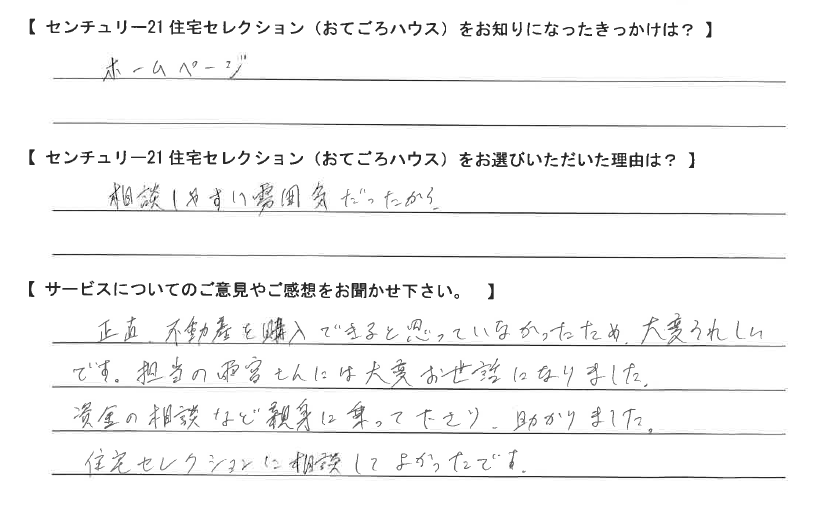 【 センチュリー21 住宅セレクション（おてごろハウス）をお知りになったきっかけは？ 】
ホームページ
【 センチュリー21 住宅セレクション（おてごろハウス）をお選びいただいた理由は？ 】
相談しやすい雰囲気だったから。
【 サービスについてのご意見やご感想をお聞かせ下さい。 】
正直、不動産を購入できると思っていなかったため、大変うれしい
です。担当の雨宮さんには大変お世話になりました。
資金の相談など親身に乗って下さり、助かりました。
住宅セレクションに相談してよかったです。